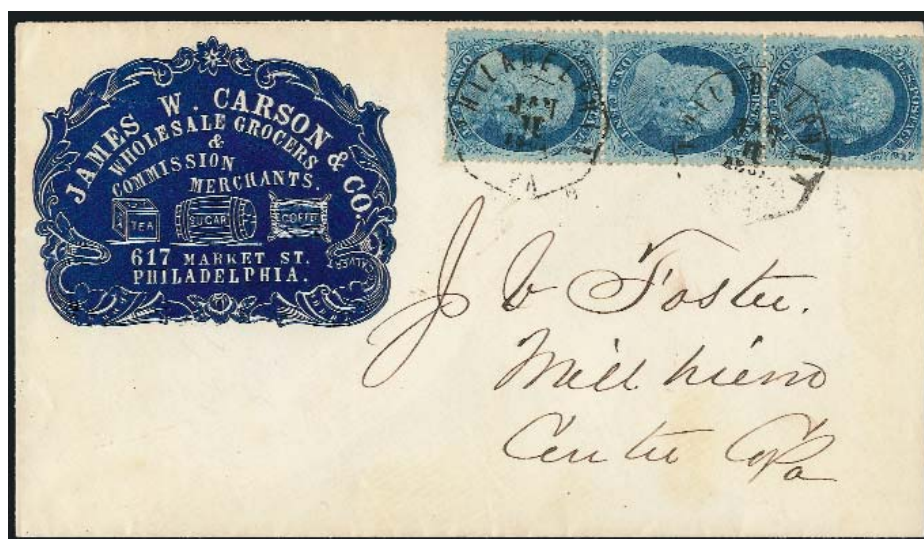 JAMES W. CARSON & CO.
WHOLESALE GROCERS
&
COMMISSION
MERCHANTS.
TEA
SUGAR
COFFEE
617 MARKET ST.
PHILADELPHIA.
PHILADELPHIA
JAN
PA
J
Foster.
Centre Co Pa